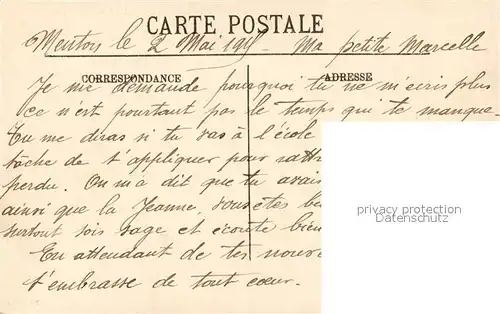 CARTE POSTALE
Menton le 2 Mai 191 Ma petite Marcelle
CORRESPONDANCE
ADRESSE
Je me demande pourquoi tu ne m'ecris plus
ce n'est pourtant pas le temps qui te manque
Tu me diras si tu vas à l'école
tâche de t'appliquer pour ratt
perdu. On m'a dit que tu avais
ainsi que la Jeanne, vous êtes b
surtout sois sage et écoute bien
En attendant de tes nouv
t'embrasse de tout coeur.
privacy protection
protection des données